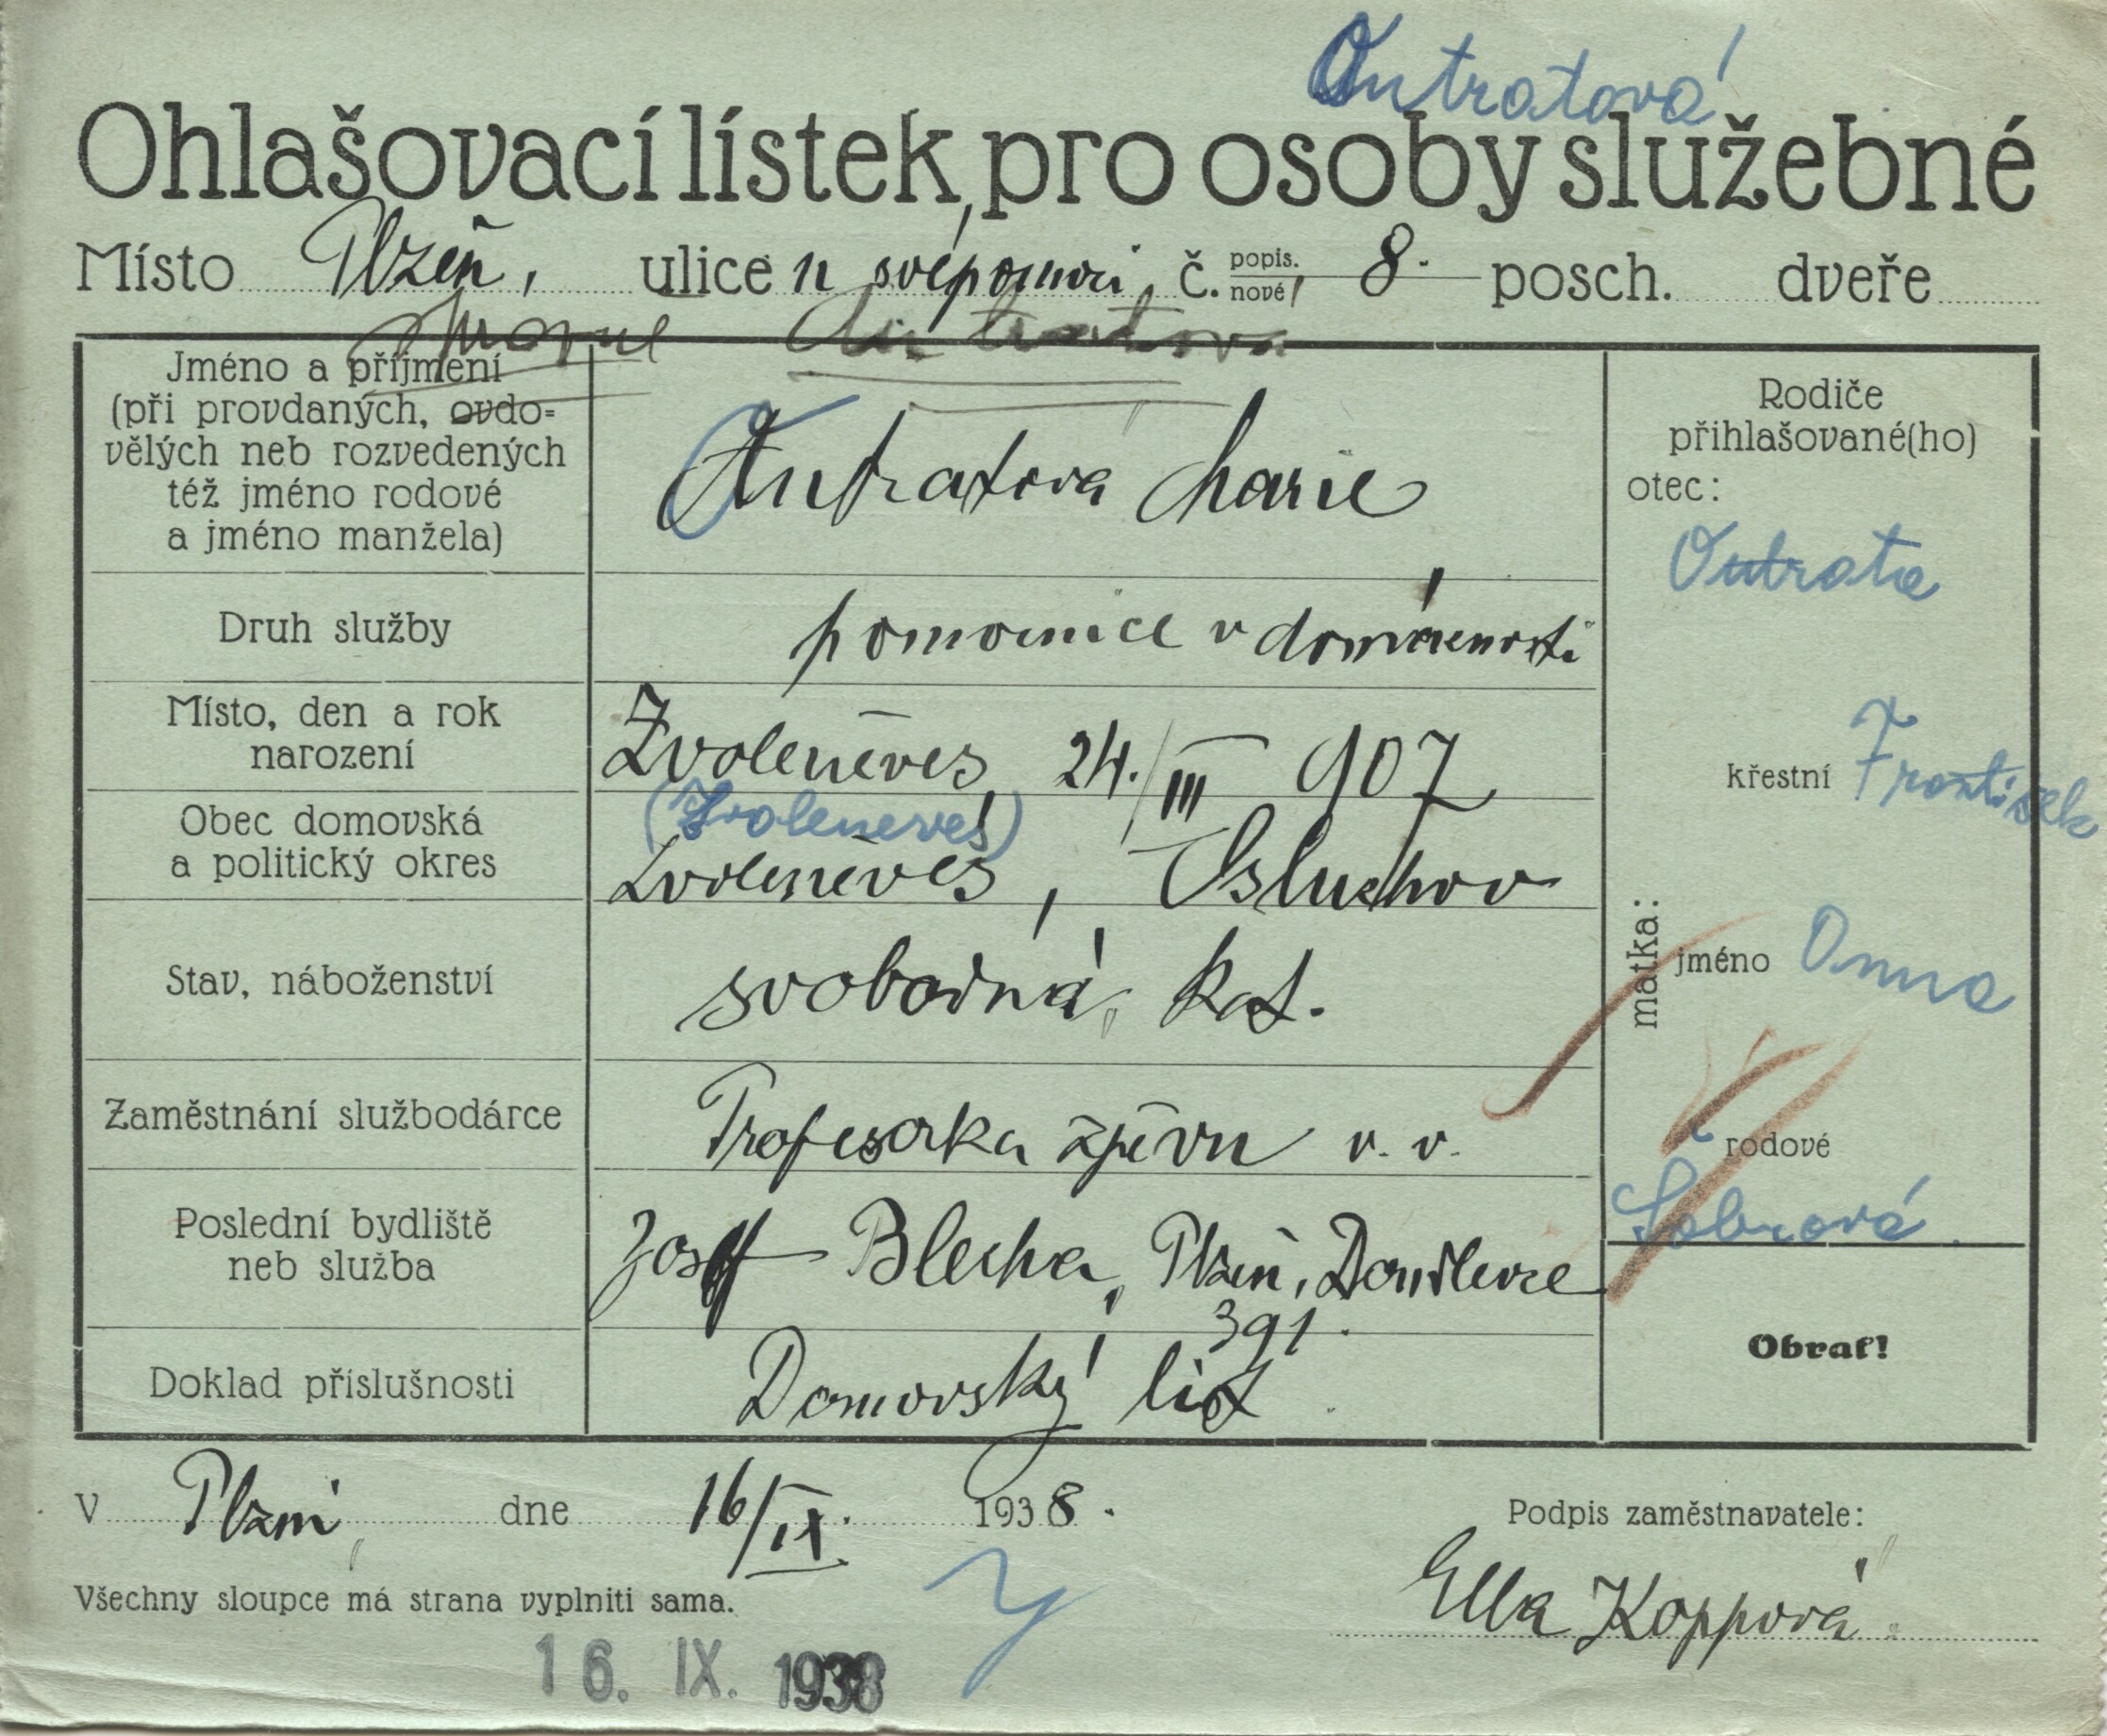 Outratová
Ohlašovací lístek pro osoby služebné
Místo Plzeň, ulice u svépomoci, č. popis. nové 8. posch. dveře
Jméno a příjmení
(při provdaných, ovdo=
vělých neb rozvedených
též jméno rodové
a jméno manžela)
Autratova Marie
Rodiče
přihlašované(ho)
otec:
Outrata
Druh služby
pomocnice v domácnosti
Místo, den a rok
narození
Zvoleněves, 24./III 907
křestní František
(Zvoleneves)
Obec domovská
a politický okres
Zvoleněves,
Stav, náboženství
svobodná, kat.
matka:
jméno Anna
Zaměstnání službodárce
Profesorka zpěvu v. v.
rodové
Poslední bydliště
neb služba
Josef Blecha, Plzeň, Doudlevce
391.
Obrať!
Doklad příslušnosti
Domovský list
V Plzni, dne 16/IX. 1938.
Podpis zaměstnavatele:
Ella Koppová.
Všechny sloupce má strana vyplniti sama.
16. IX. 1938